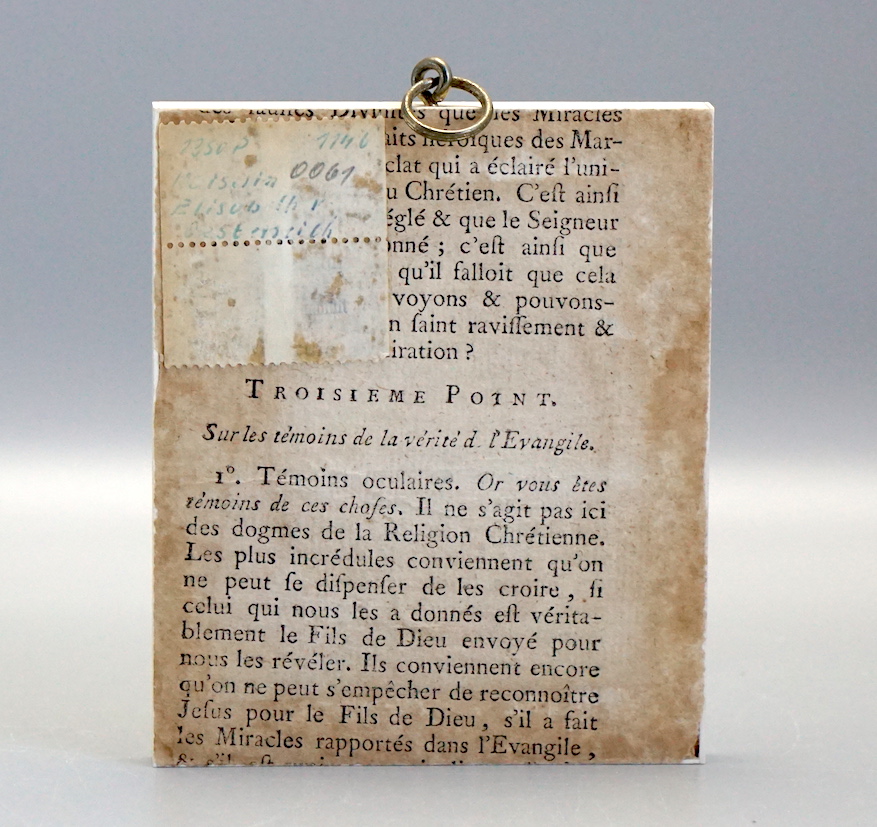 des fausses Divinités que les Miracles
aits héroïques des Mar-
clat qui a éclairé l'uni-
u Chrétien. C'eſt ainſi
églé & que le Seigneur
onné ; c'eſt ainſi que
qu'il falloit que cela
voyons & pouvons-
n ſaint raviſſement &
iration ?
1350 P 1146
0061
Elisabeth
TROISIEME POINT.
Sur les témoins de la vérité d l'Evangile.
1°. Témoins oculaires. Or vous êtes
témoins de ces choſes. Il ne s'agit pas ici
des dogmes de la Religion Chrétienne.
Les plus incrédules conviennent qu'on
ne peut ſe diſpenſer de les croire, ſi
celui qui nous les a donnés eſt vérita-
blement le Fils de Dieu envoyé pour
nous les révéler. Ils conviennent encore
qu'on ne peut s'empêcher de reconnoître
Jeſus pour le Fils de Dieu, s'il a fait
les Miracles rapportés dans l'Evangile,